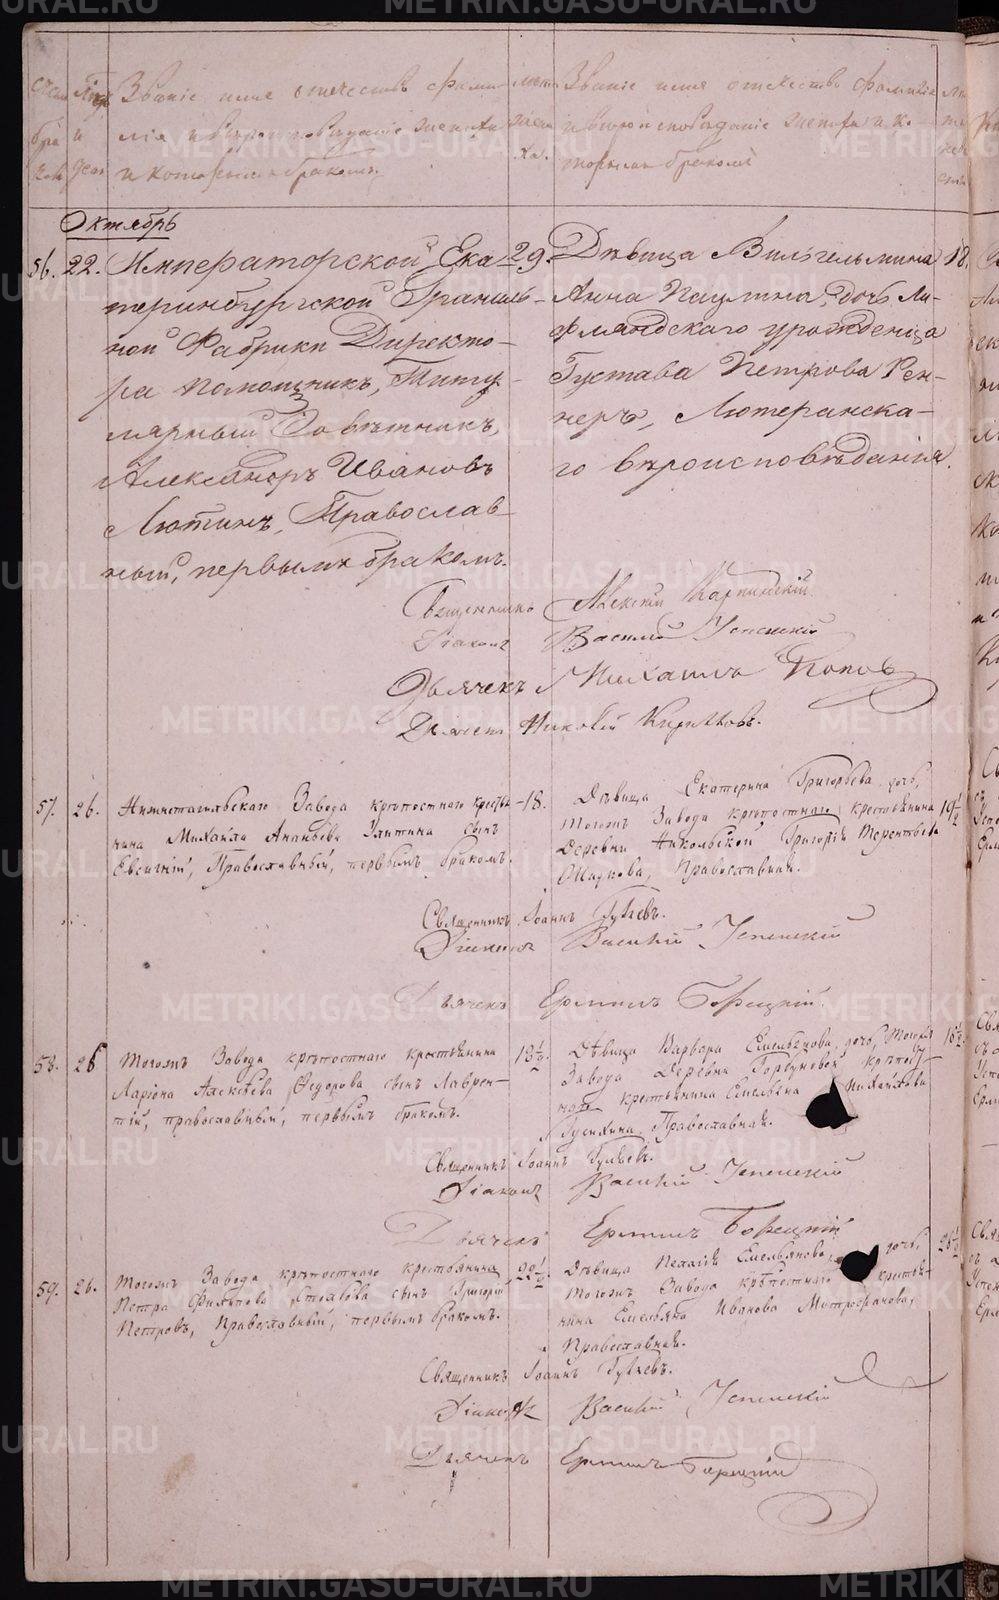 Счетъ
бра
ковъ
и
Званіе имя отечество фами
лія и вѣроисповѣданіе жениха
и которымъ бракомъ.
лѣта
жени
ха.
Званіе имя отечество фамилія
и вѣроисповѣданіе невѣсты и ко
торымъ бракомъ
Октябрь
56. 22. Императорской Ека
теринбургской Граниль
ной Фабрики Директо
ра помощникъ, Титу
лярный Совѣтникъ,
Александръ Ивановъ
Лютинъ, Православ
ный, первымъ бракомъ.
29.
Дѣвица Вильгельмина
Анна Паулина, дочь Ли-
фляндскаго урожденца
Густава Петрова Рен-
неръ, Лютеранска-
го вѣроисповѣданія.
18.
Священникъ Алексій Карпинскій.
Діаконъ Василій Успенскій
Дьячекъ Михаилъ Поповъ
Дьячекъ Никовій Кириловъ.
57. 26. Нижнетагильскаго Завода крѣпостнаго крестья
нина Михайла Ананьева Улитина сынъ
Евсигній, Православный, первымъ бракомъ.
18.
Дѣвица Екатерина Григорьева дочь,
тогожъ Завода крѣпостнаго крестьянина
Деревни Никольской Григорія Терентьева
Православная.
19 1/2
Священникъ Іоаннъ Гуляевъ.
Діаконъ Василій Успенскій
Дьячекъ Ермилъ Борецкій.
58. 26 Тогожъ Завода крѣпостнаго крестьянина
Ларіона Алексѣева Федорова сынъ Лаврен-
тій, православный, первымъ бракомъ.
18 1/2.
Дѣвица Варвара Емельянова, дочь, Тогожъ
Завода Деревни Горбуновой крѣпост
наго крестьянина Емельяна Михайлова
Гусихина, Православная.
18 1/2
Священникъ Іоаннъ Гуляевъ.
Діаконъ Василій Успенскій
Дьячекъ Ермилъ Борецкій
59. 26. Тогожъ Завода крѣпостнаго крестьянина
Петра Филипова сынъ Григорій
Петровъ, Православный, первымъ бракомъ.
22 1/2
Дѣвица Пелагія Емельянова, дочь,
тогожъ Завода крѣпостнаго крестья-
нина Емельяна Иванова Митрофанова,
Православная.
Священникъ Іоаннъ Гуляевъ.
Діаконъ Василій Успенскій
Дьячекъ Ермилъ Борецкій
METRIKI.GASO-URAL.RU